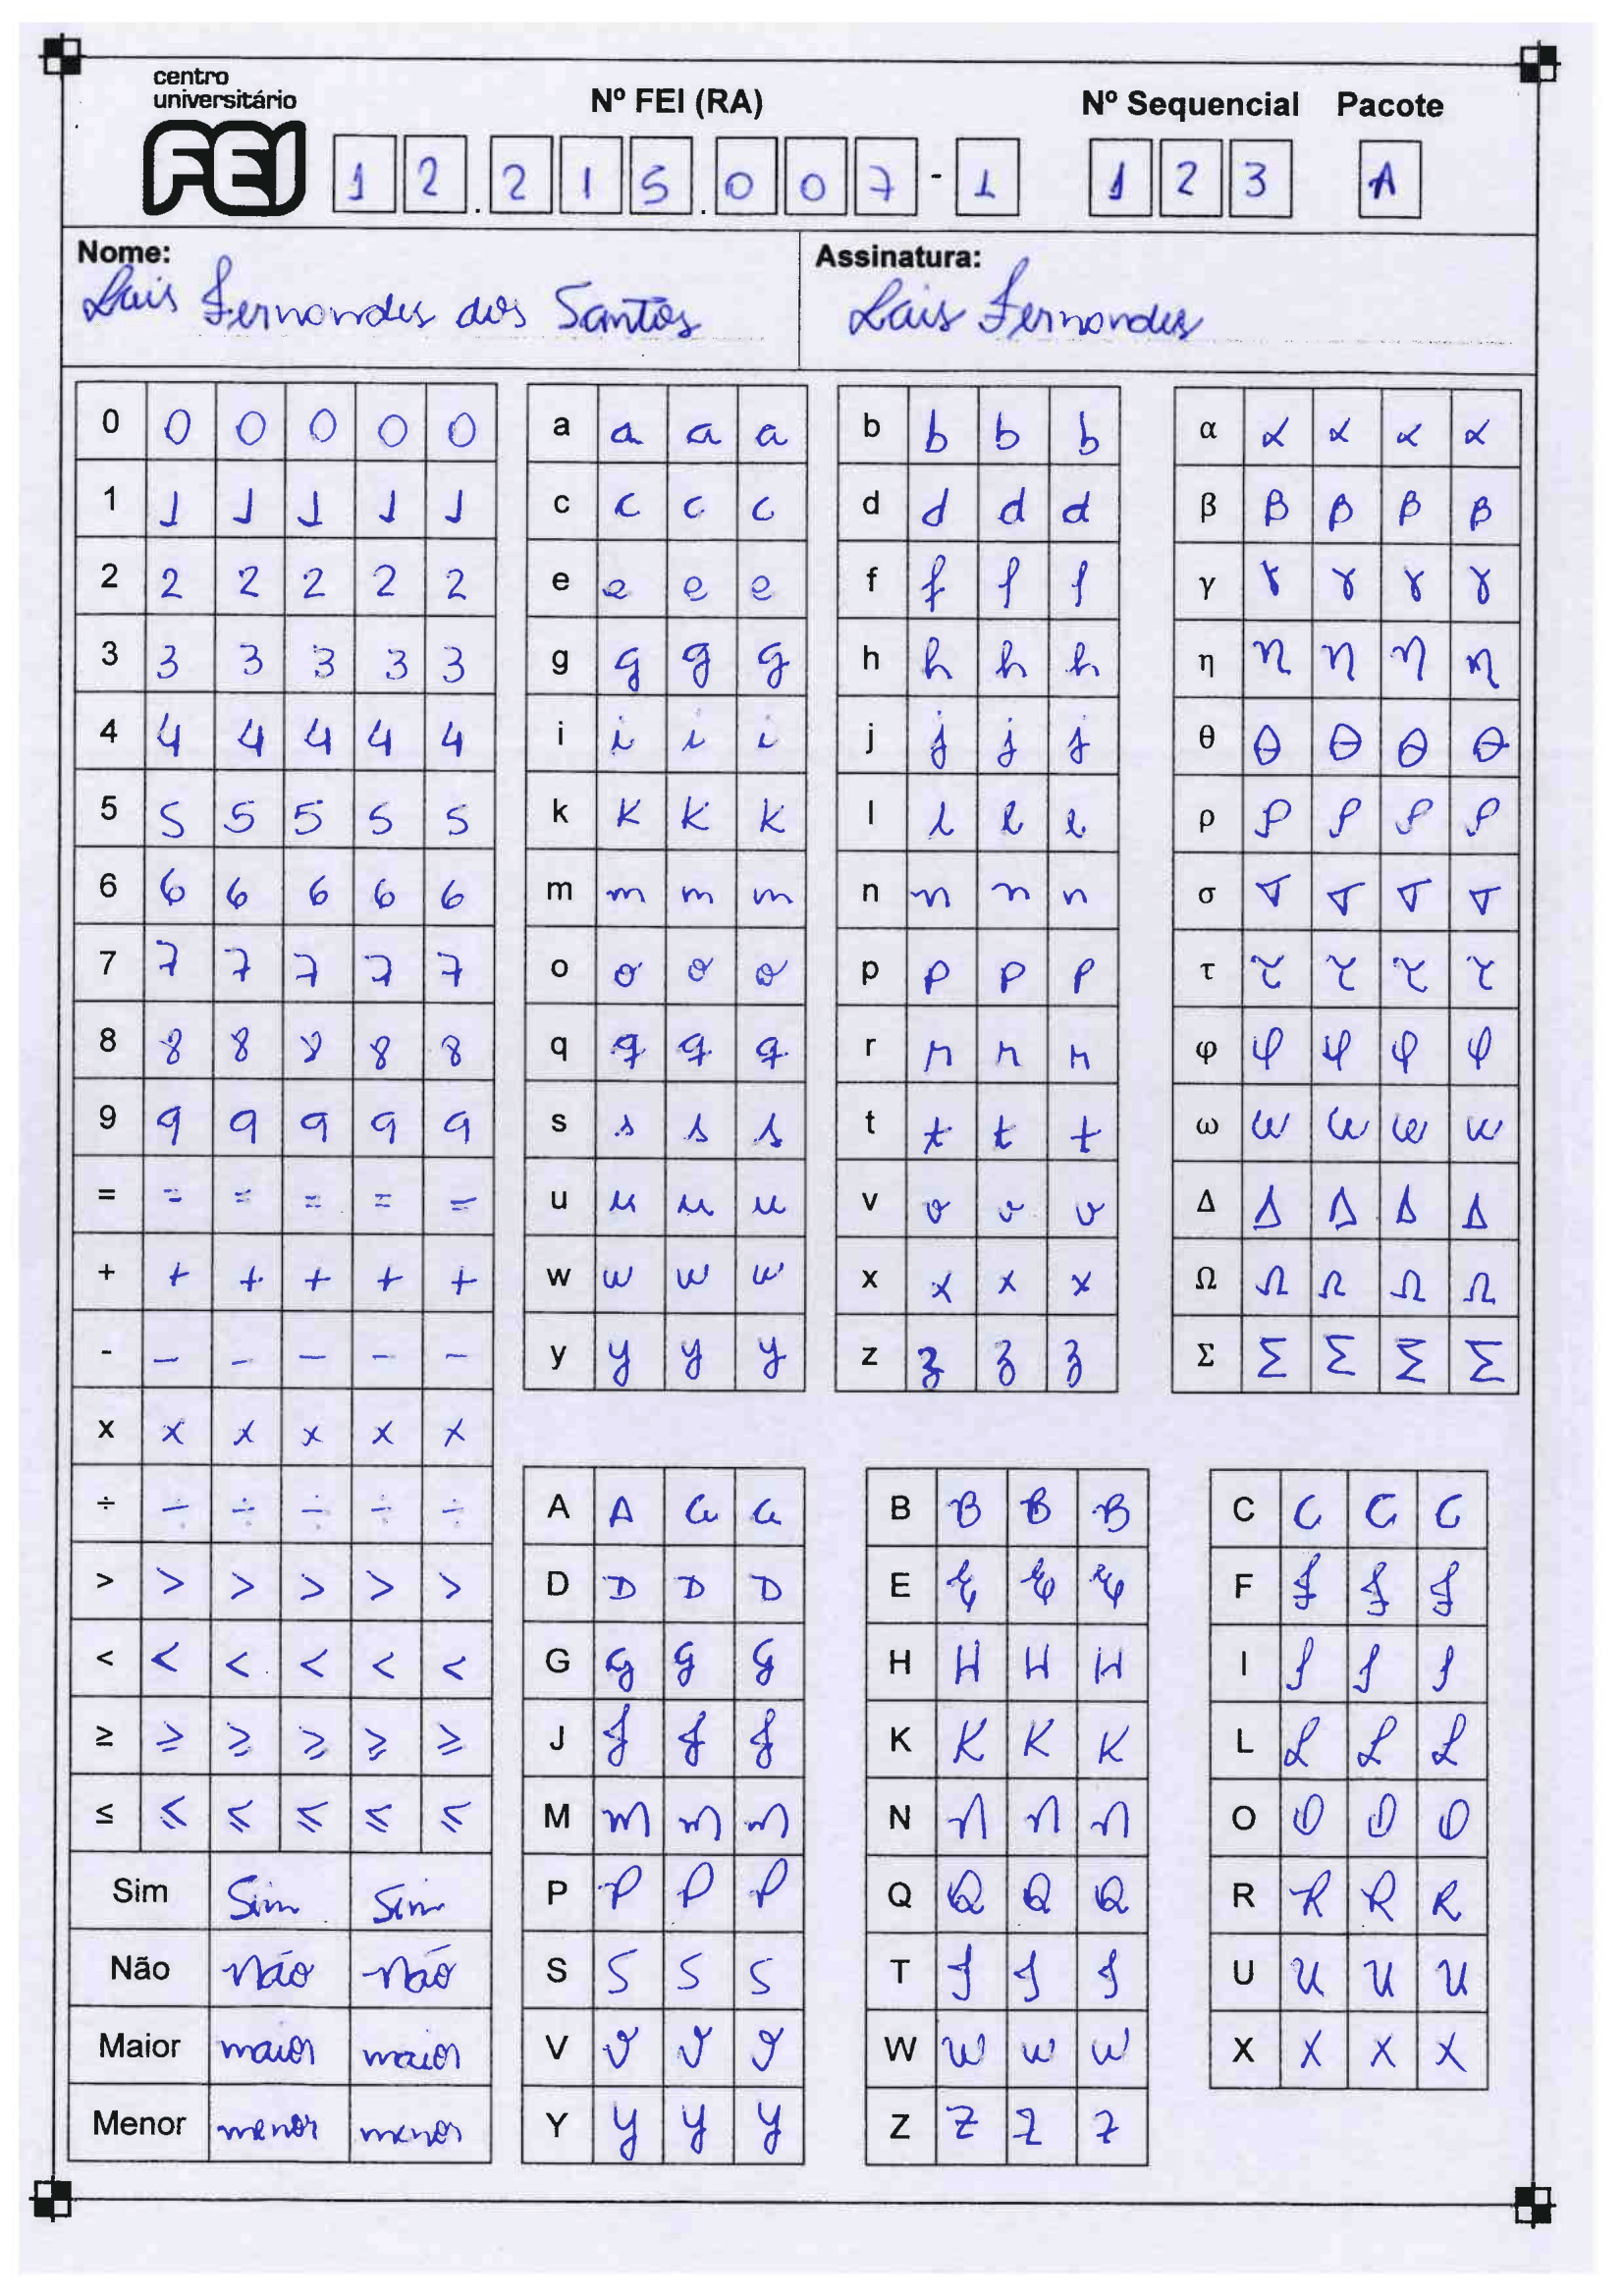 centro
universitário
FEI
Nº FEI (RA)
Nº Sequencial Pacote
12.215.007-1 123 A
Nome:
Lais Fernandes dos Santos
Assinatura:
Lais Fernandes
0 0 0 0 0 0
1 1 1 1 1 1
2 2 2 2 2 2
3 3 3 3 3 3
4 4 4 4 4 4
5 5 5 5 5 5
6 6 6 6 6 6
7 7 7 7 7 7
8 8 8 8 8 8
9 9 9 9 9 9
= = = = = =
+ + + + + +
- - - - - -
x x x x x x
÷ ÷ ÷ ÷ ÷ ÷
> > > > > >
< < < < < <
≥ ≥ ≥ ≥ ≥ ≥
≤ ≤ ≤ ≤ ≤ ≤
Sim Sim Sim
Não Não Não
Maior maior maior
Menor menor menor
a a a a
c c c c
e e e e
g g g g
i i i i
k k k k
m m m m
o o o o
q q q q
s s s s
u u u u
w w w w
y y y y
b b b b
d d d d
f f f f
h h h h
j j j j
l l l l
n n n n
p p p p
r r r r
t t t t
v v v v
x x x x
z z z z
α α α α α
β β β β β
γ γ γ γ γ
η η η η η
θ θ θ θ θ
ρ ρ ρ ρ ρ
σ σ σ σ σ
τ τ τ τ τ
φ φ φ φ φ
ω ω ω ω ω
Δ Δ Δ Δ Δ
Ω Ω Ω Ω Ω
Σ Σ Σ Σ Σ
A A A A
D D D D
G G G G
J J J J
M M M M
P P P P
S S S S
V V V V
Y Y Y Y
B B B B
E E E E
H H H H
K K K K
N N N N
Q Q Q Q
T T T T
W W W W
Z Z Z Z
C C C C
F F F F
I I I I
L L L L
O O O O
R R R R
U U U U
X X X X